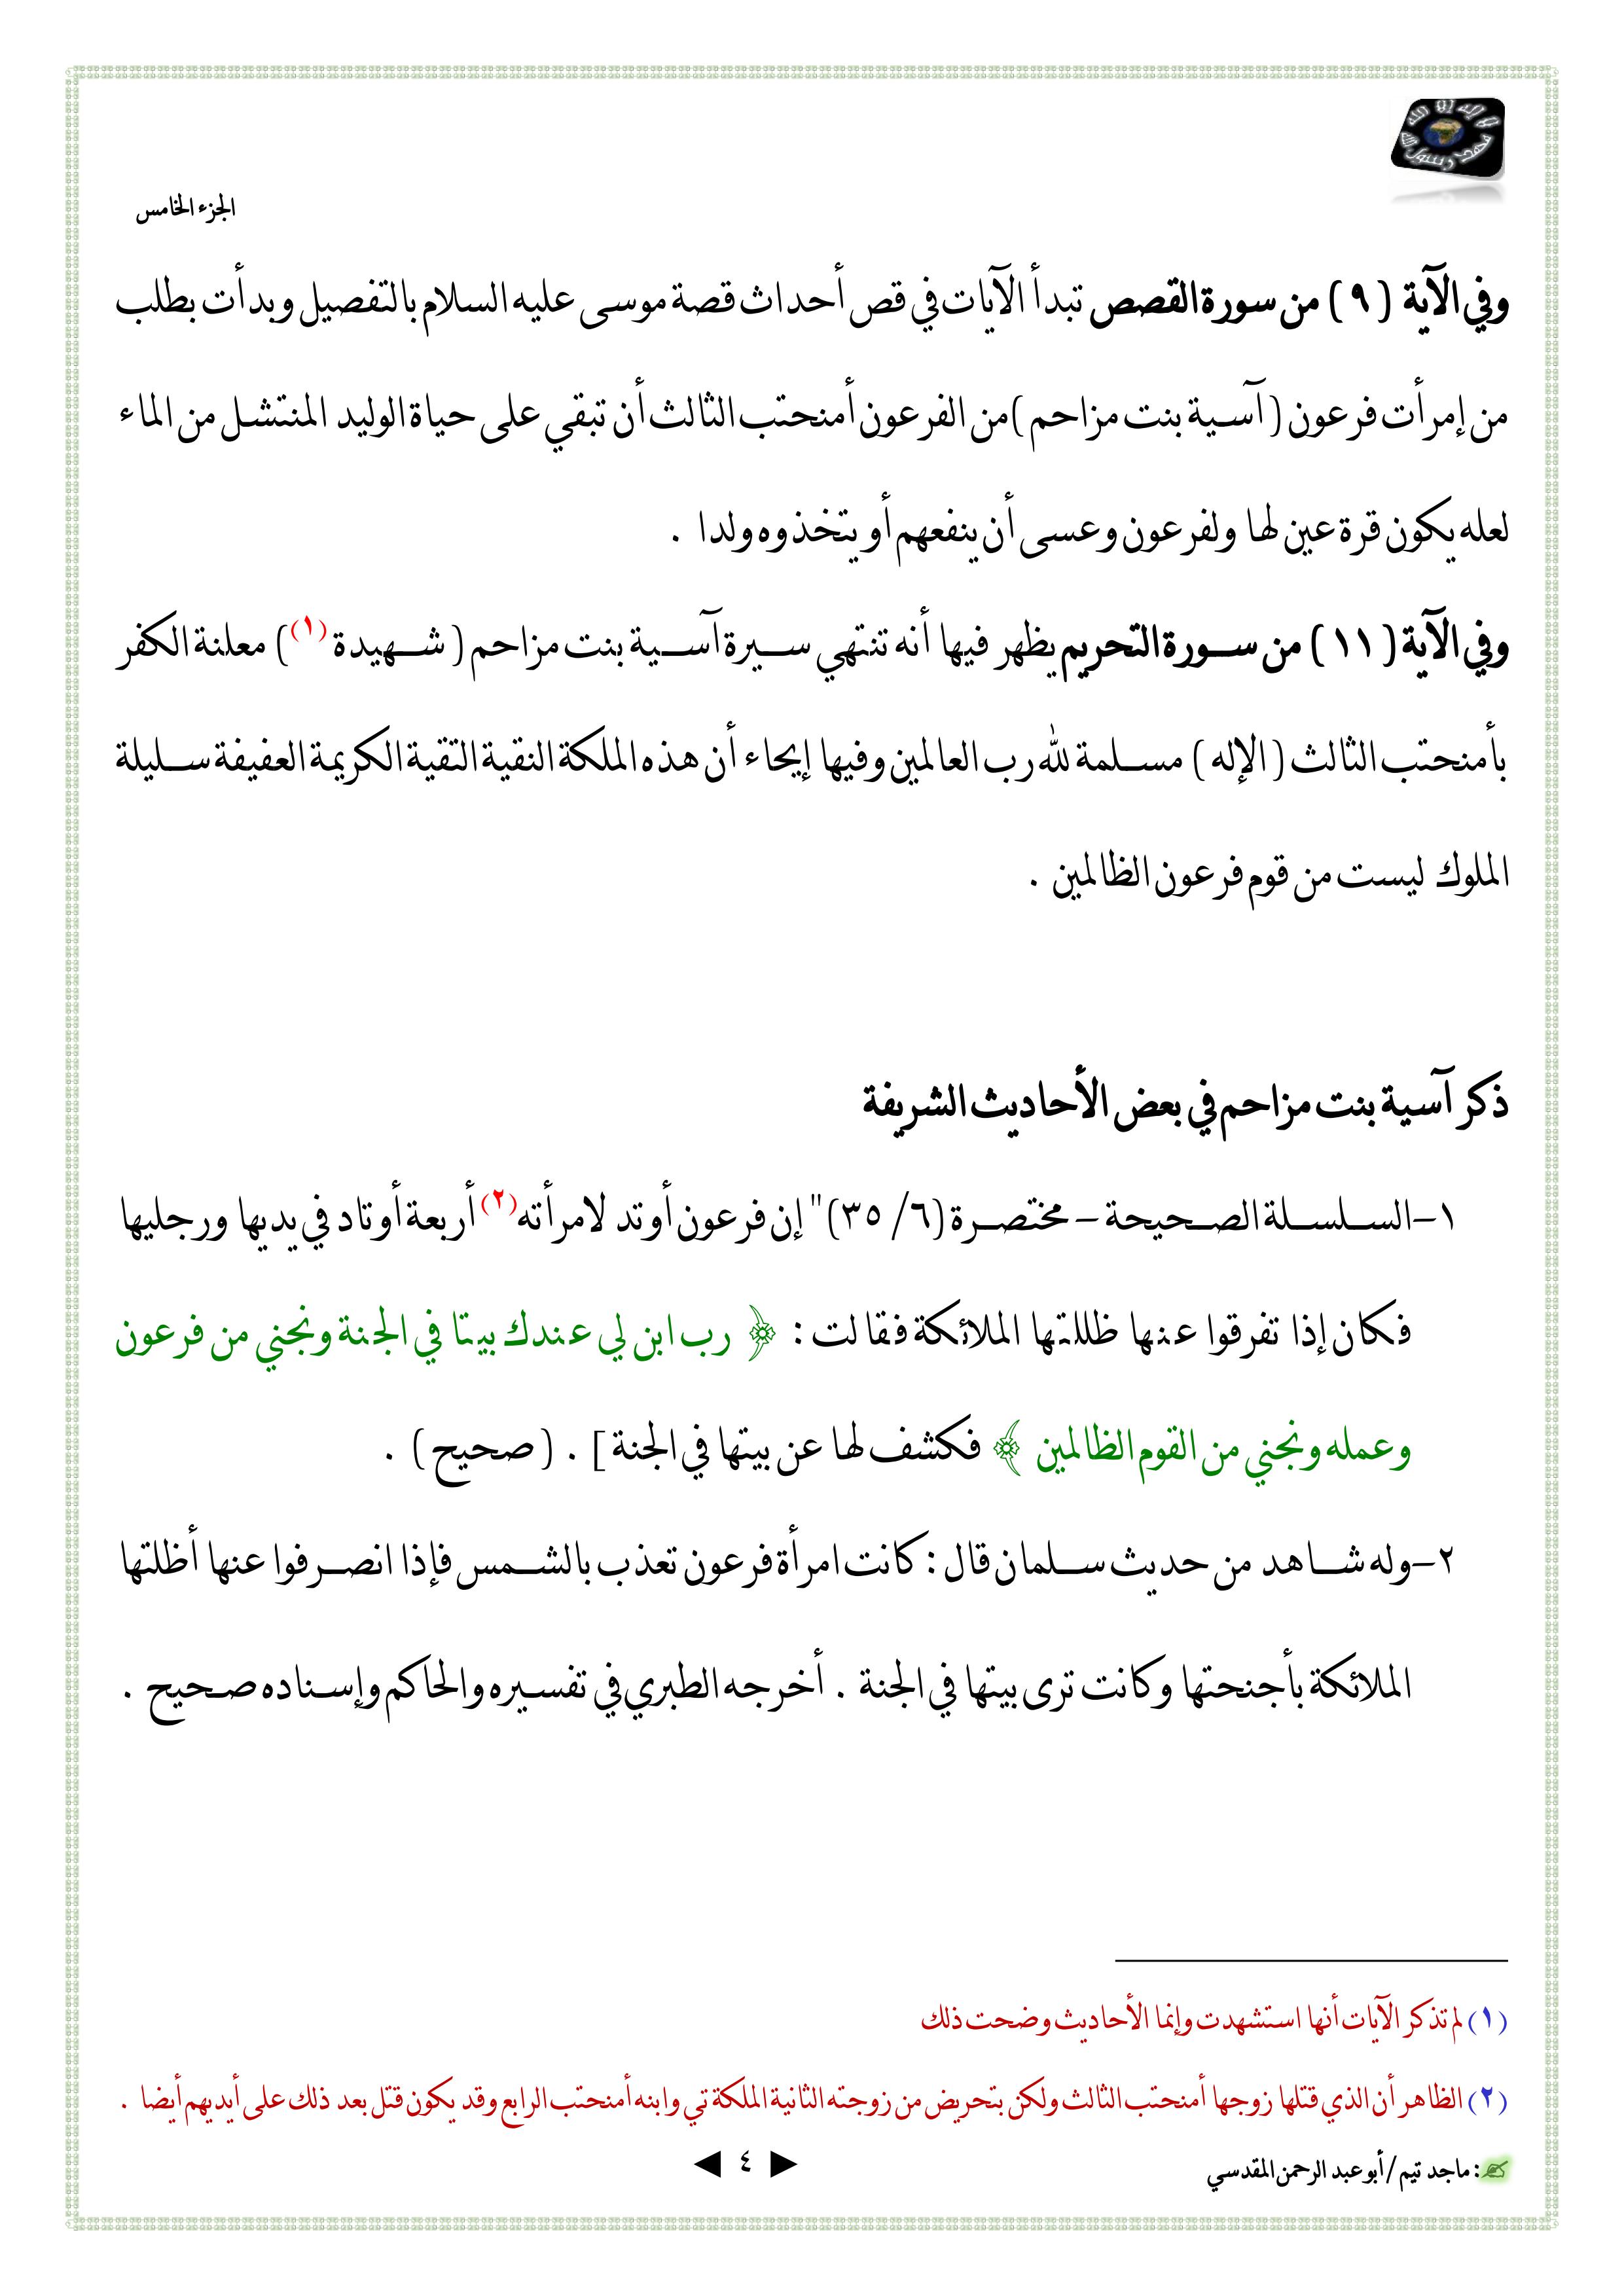 لا إله إلا الله
محمد رسول الله
الجزء الخامس
وفي الآية ( ٩ ) من سورة القصص تبدأ الآيات في قص أحداث قصة موسى عليه السلام بالتفصيل وبدأت بطلب
من إمرأت فرعون ( آسية بنت مزاحم ) من الفرعون أمنحتب الثالث أن تبقي على حياة الوليد المنتشل من الماء
لعله يكون قرة عين لها ولفرعون وعسى أن ينفعهم أو يتخذوه ولدا .
وفي الآية ( ١١ ) من سورة التحريم يظهر فيها أنه تنتهي سيرة آسية بنت مزاحم ( شهيدة (١) ) معلنة الكفر
بأمنحتب الثالث ( الإله ) مسلمة لله رب العالمين وفيها إيحاء أن هذه الملكة النقية التقية الكريمة العفيفة سليلة
الملوك ليست من قوم فرعون الظالمين .
ذكر آسية بنت مزاحم في بعض الأحاديث الشريفة
١-السلسلة الصحيحة - مختصرة (٦/ ٣٥) " إن فرعون أوتد لامرأته (٢) أربعة أوتاد في يديها ورجليها
فكان إذا تفرقوا عنها ظللتها الملائكة فقالت : ﴿ رب ابن لي عندك بيتا في الجنة ونجني من فرعون
وعمله ونجني من القوم الظالمين ﴾ فكشف لها عن بيتها في الجنة ] . ( صحيح ) .
٢-وله شاهد من حديث سلمان قال : كانت امرأة فرعون تعذب بالشمس فإذا انصرفوا عنها أظلتها
الملائكة بأجنحتها وكانت ترى بيتها في الجنة . أخرجه الطبري في تفسيره والحاكم وإسناده صحيح .
(١) لم تذكر الآيات أنها استشهدت وإنما الأحاديث وضحت ذلك
(٢) الظاهر أن الذي قتلها زوجها أمنحتب الثالث ولكن بتحريض من زوجته الثانية الملكة تي وابنه أمنحتب الرابع وقد يكون قتل بعد ذلك على أيديهم أيضا .
✍ : ماجد تيم / أبو عبد الرحمن المقدسي
► ٤ ◄